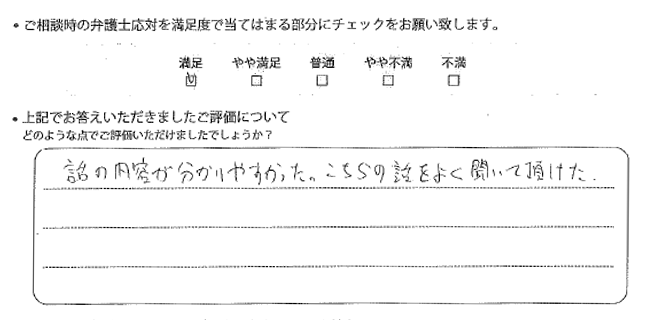 ・ご相談時の弁護士応対を満足度で当てはまる部分にチェックをお願い致します。
満足 やや満足 普通 やや不満 不満
☑ □ □ □ □
・上記でお答えいただきましたご評価について
どのような点でご評価いただけましたでしょうか？
話の内容が分かりやすかった。こちらの話をよく聞いて頂けた.